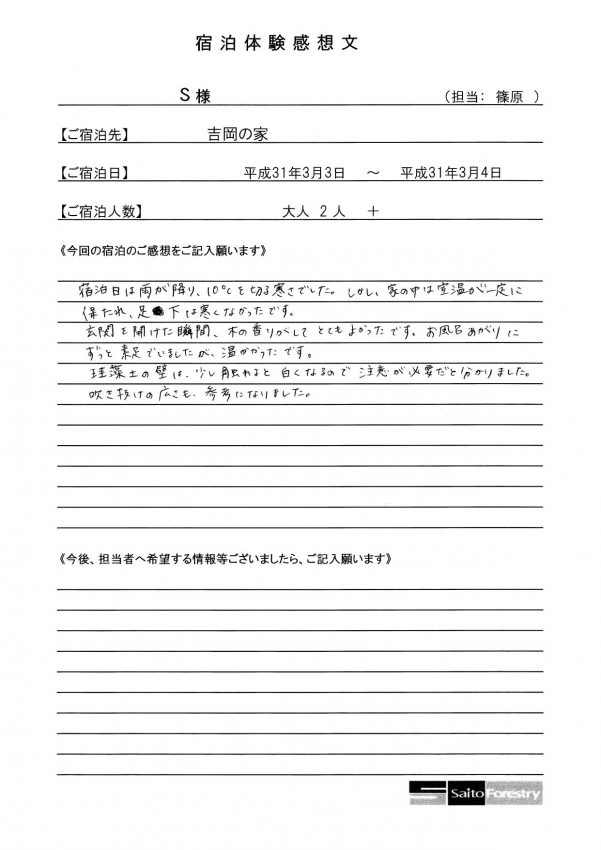 宿泊体験感想文
S 様 （担当： 篠原 ）
【ご宿泊先】 吉岡の家
【ご宿泊日】 平成31年3月3日 ～ 平成31年3月4日
【ご宿泊人数】 大人 2 人 ＋
《今回の宿泊のご感想をご記入願います》
宿泊日は雨が降り、10℃を切る寒さでした。しかし、家の中は室温が一定に
保たれ、足下は寒くなかったです。
玄関を開けた瞬間、木の香りがしてとてもよかったです。お風呂あがりに
ずっと素足でいましたが、温かかったです。
珪藻土の壁は、少し触れると白くなるので注意が必要だと分かりました。
吹き抜けの広さも、参考になりました。
《今後、担当者へ希望する情報等ございましたら、ご記入願います》
Saito Forestry